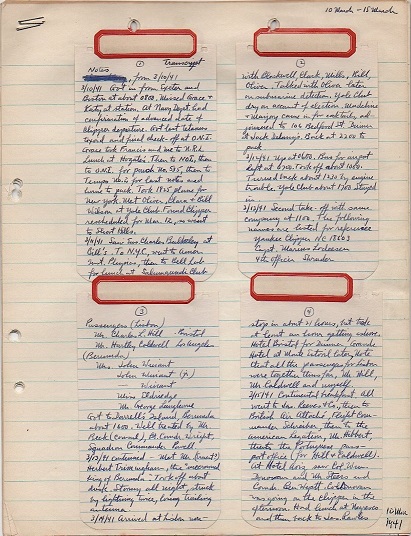 10 March - 15 March
5
①
Transcript
Notes
, from 3/10/41
3/10/41 Got in from Exeter and
Boston at about 0800. Missed Grace &
Katy at station. At Navy Dept. had
confirmation of advanced date of
Clipper departure. Got last
and final check-off at O.N.I.
Grace took Francis and me to N.P.S.
lunch at Hogates. Then to Nats, then
to O.N.I. for pouch No. 35, then to
Tempo. Nats for last notes and
home to pack. Took 1825 plane for
New York. Met Oliver, Clara & Bill
Wilson at Yale Club. Found Clipper
rescheduled for Mar. 12, so went
to Short Hills.
3/11/41 Saw Charles at
Bill's. To N.Y.C., went to
, then to Bell Lab
for lunch at Club
②
with Blackwell, Clark, Mills, Kill,
Oliver. Talked with Oliver later
on submarine detection. Yale Club
dry on account of election. Madeline
& Marjory came in for cocktails, ad-
journed to 106 Bedford St. Dinner
at Jack Delaney's. Back at 2200 to
pack
3/12/41 Up at 0600. Bus for airport
dept at 0700. Took off about 1000.
Turned back about 1230 by engine
trouble. Yale Club about 1700. Stayed
in
3/13/41 Second take-off with same
company at 1100. The following
names are listed for reference
Yankee Clipper NC 18603
Capt. Marius Lodeesen
4th officer Shrader
③
Passengers (Lisbon)
Mr. Charles L. Hill - Bristol
Mr. Hartley Caldwell Los Angeles
(Bermuda)
Mrs. John Winant
John Winant (Jr)
Winant
Miss Eldredge
Mr. George
Got to Darrell's Island, Bermuda
about 1600. Well treated by Mr.
Beck (Consul), Lt. Comdr. Wright,
Squadron Commander Powell
3/13/41 continued - Met Mr. (Knut?)
Herbert Trimingham, "the uncrowned
king of Bermuda". Took off about
dusk. Stormy all night, struck
by lightning twice, losing trailing
antenna.
3/14/41 Arrived at Lisbon non-
④
stop in about 21 hours, but took
at least an hour getting ashore.
Hotel Bristol for dinner, Grande
Hotel at Monte Estoril later. Note
that all the passengers for Lisbon
were together thus far, Mr. Hill,
Mr. Caldwell and myself.
3/15/41 Continental breakfast. All
went to San Reeves & Co., then to
British Air Attaché, Flight Com-
mander Schreiber, then to the
American Legation, Mr. Hibbert,
thence the Portuguese pass-
port office (for Hill & Caldwell).
At Hotel Aviz saw Col. Wm.
Donovan and Mr. Stearns and
Comdr. Ben Wyatt. Col. Donovan
was going on the Clipper in the
afternoon. Had lunch at Negresco
and then back to San Reeves
12 Mar
1941